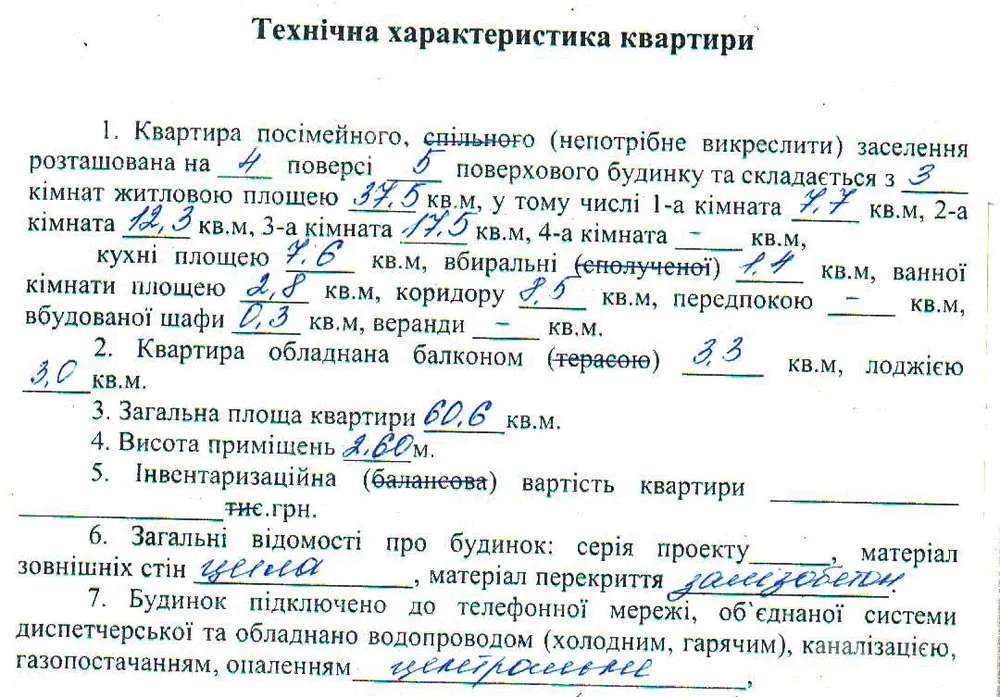 Технічна характеристика квартири
1. Квартира посімейного, спільного (непотрібне викреслити) заселення
розташована на 4 поверсі 5 поверхового будинку та складається з 3
кімнат житловою площею 37,5 кв.м, у тому числі 1-а кімната 7,7 кв.м, 2-а
кімната 12,3 кв.м, 3-а кімната 17,5 кв.м, 4-а кімната - кв.м,
кухні площею 7.6 кв.м, вбиральні (сполученої) 1.4 кв.м, ванної
кімнати площею 2,8 кв.м, коридору 8,5 кв.м, передпокою - кв.м,
вбудованої шафи 0,3 кв.м, веранди - кв.м.
2. Квартира обладнана балконом (терасою) 3,3 кв.м, лоджією
3,0 кв.м.
3. Загальна площа квартири 60.6 кв.м.
4. Висота приміщень 2.60 м.
5. Інвентаризаційна (балансова) вартість квартири
тис.грн.
6. Загальні відомості про будинок: серія проекту______, матеріал
зовнішніх стін цегла, матеріал перекриття залізобетон.
7. Будинок підключено до телефонної мережі, об`єднаної системи
диспетчерської та обладнано водопроводом (холодним, гарячим), каналізацією,
газопостачанням, опаленням центральне,